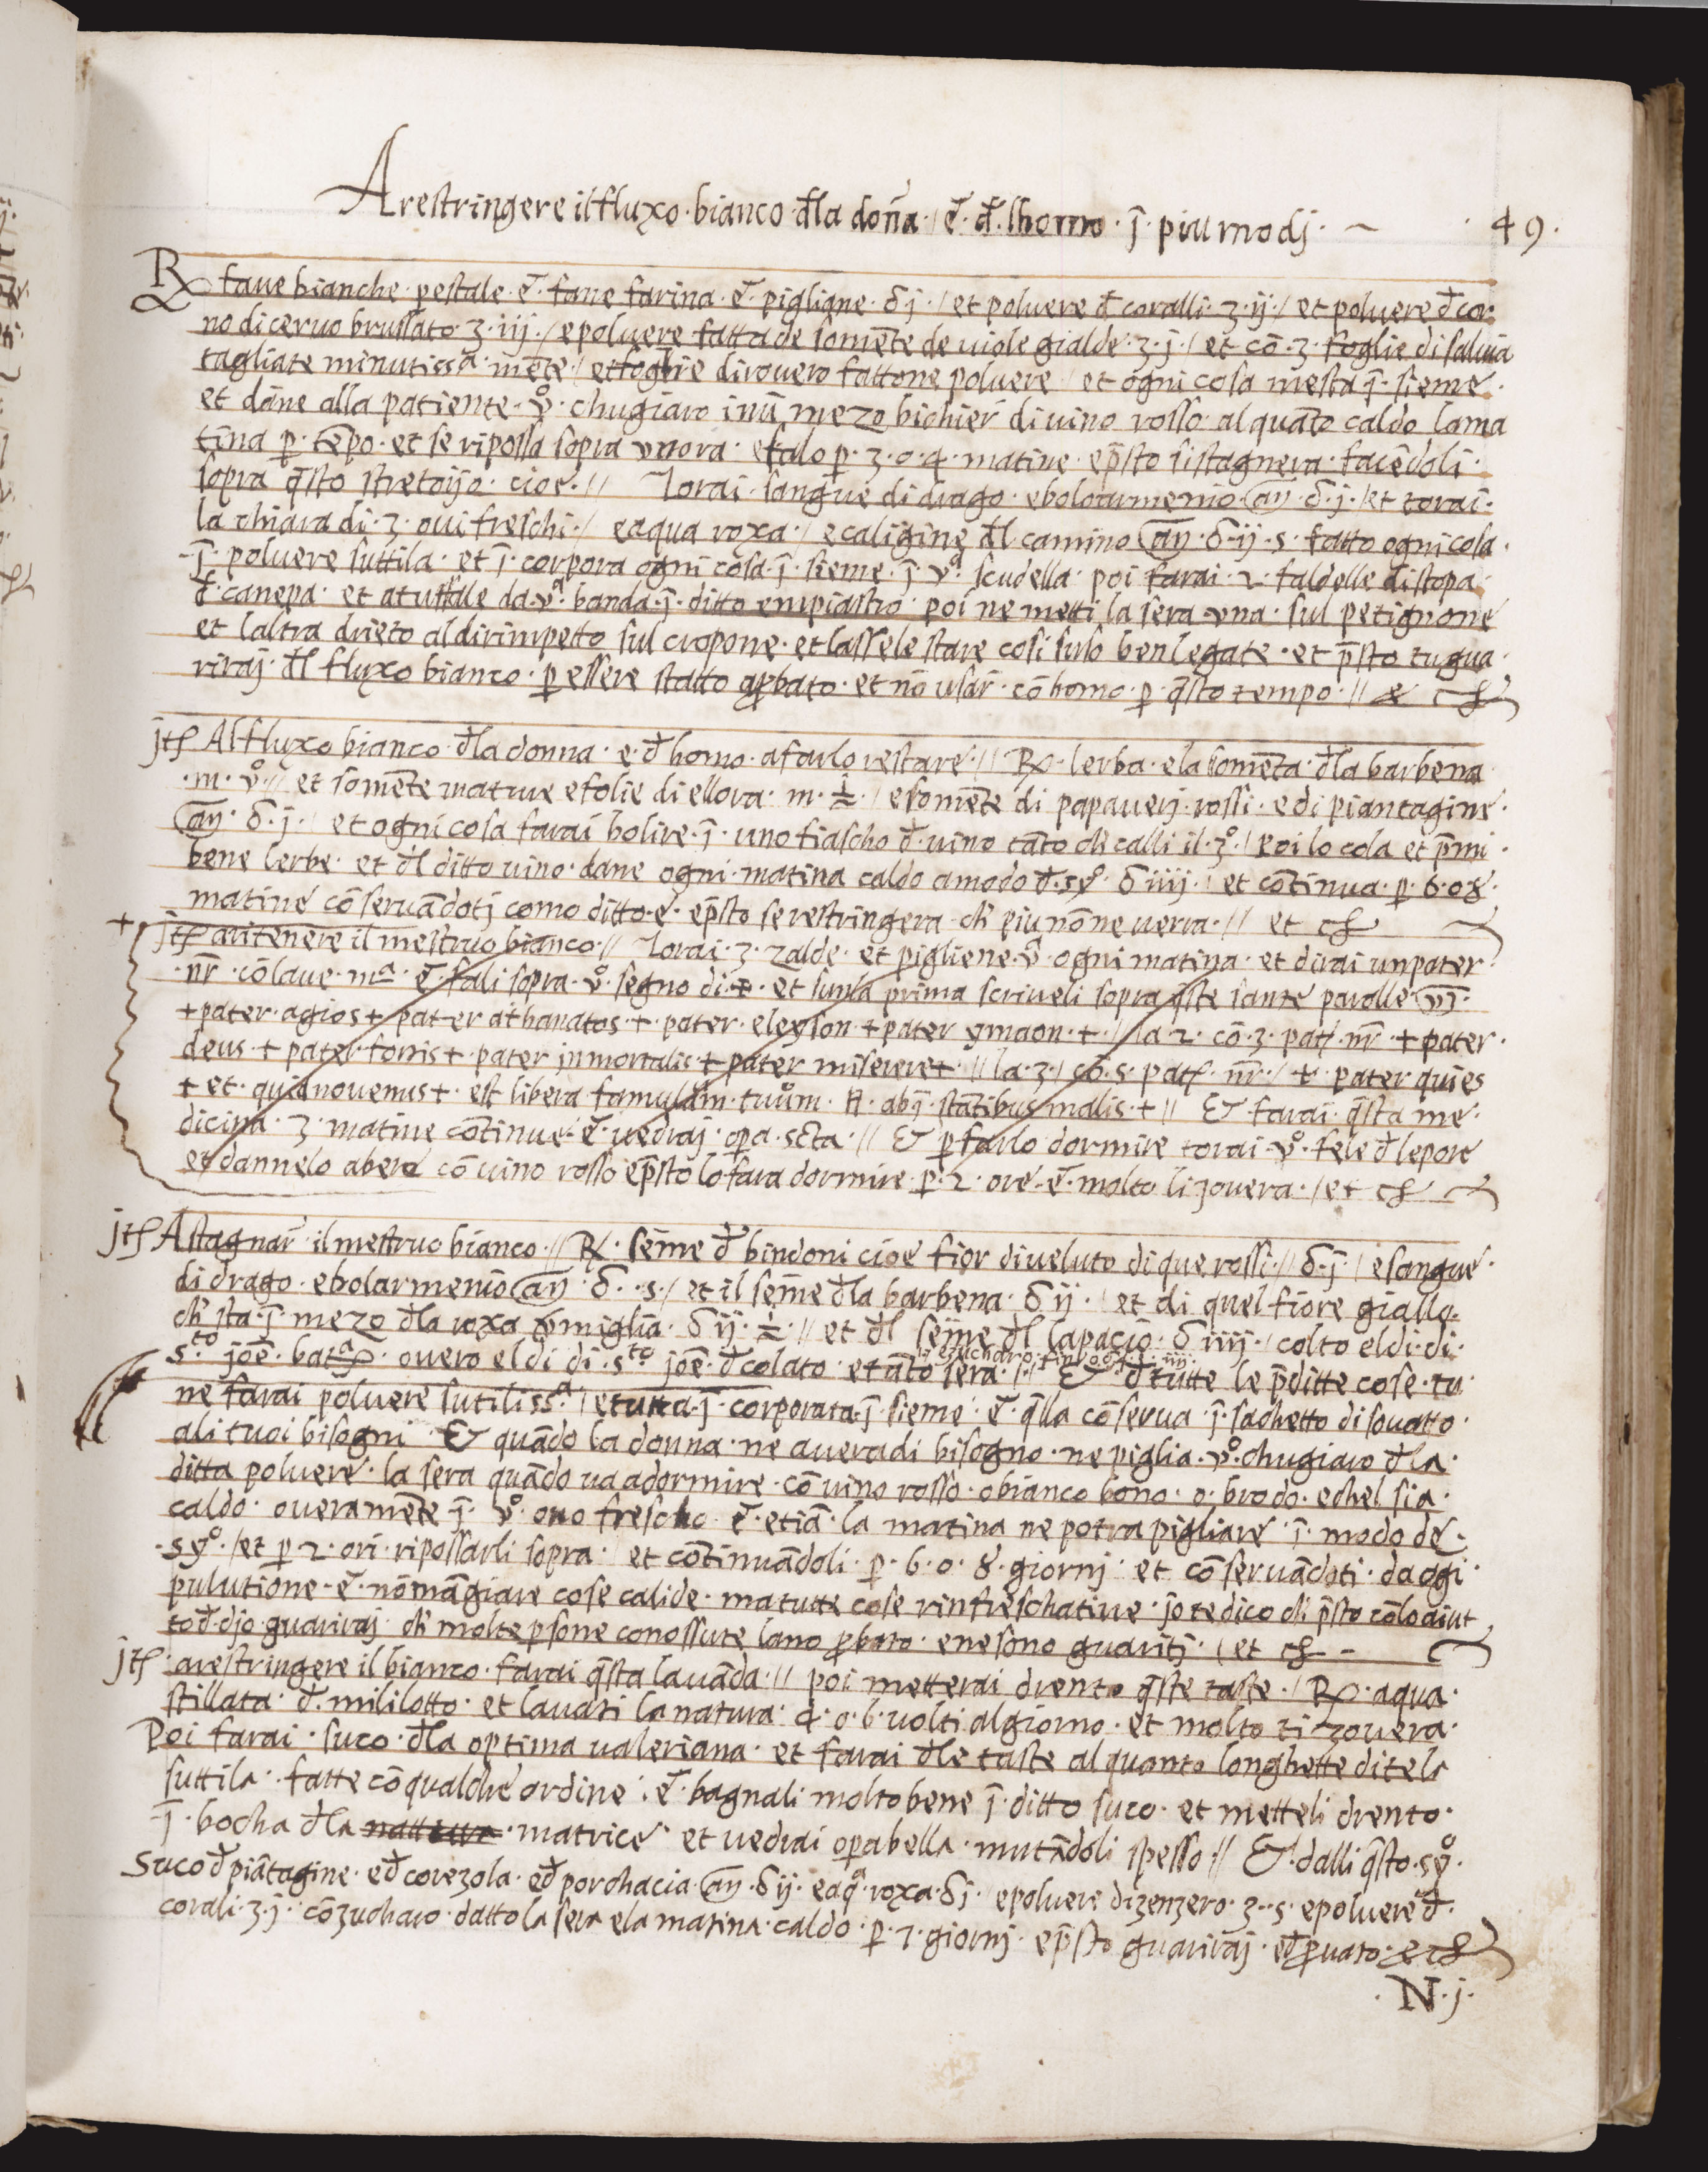 A restringere il fluxo · bianco · đla dona · / ē · đ · lhomo · ī · piu modj · ~
· 49 ·
℞ faue bianche · pestale · ē · fane farina · ē · pigliane · δ j · / et poluere đ coralli · ʒ · ij · / et poluere đ cor:
no di ceruo brussato · ʒ · iij · / e poluere fatta de somēte de uiole gialde · ʒ · j · / et cō · 3 · foglie di saluia
tagliate minutissᵃ · mēte / et foglie di rouero fattone poluere / et ogni cosa mesta ī · sieme ·
et dāne alla patiente · vº · chugiaro inū mezo bichier̄ di uino rosso · alquāto caldo lama
tina p̱ · tēpo · et se ripossa sopra vnora · efalo p̱ · 3 · o · 4 · matine · ep̄sto sistagnera · facēdoli ·
sopra q̄sto stretoijo · cioe · // Torai · sangue di drago · e boloarmenio · añ · δ · j · / et torai ·
la chiara di · 3 · oui freschi · / eaqua roxa · / ecaligine đl camino añ · δ · ij · s · fatto ogni cosa ·
ī · poluere suttila · et ī · corpora ogni cosa · ī · sieme · ī · vᵃ · scudella · poi farai · 2 · faldelle di stopa ·
đ · canepa · et atuffale da · vᵃ · banda · ī · ditto empiastro · poi ne metti la sera vna · sul petignone
et laltra drieto al dirimpetto sul cropone · et lassele stare cosi suso ben legate · et p̄sto tu gua ·
riraj · đl fluxo bianco · p̱ essere statto ꝓbato · et nō usar̄ · cō homo · p̱ · q̄sto tempo · // &
jtꝭ Al fluxo bianco · đla donna · e · đ homo · a farlo restare · // ℞ · lerba · e la somēta · đla barbena
· m · vº · // et somēte mature e folie di ellora · m · ½ · / e somēte di papauerj · rossi · e di piantagine ·
añ · δ · j · / et ogni cosa farai bolire · ī · uno fiascho đ · uino tāto ch̄ calli il · 3º · / poi lo cola et p̄mi ·
bene lerbe · et đl ditto uino · dane ogni · matina caldo a modo đ · syº · δ iiij · / et cōtinua · p̱ · 6 · o 8 ·
matine cō seruādotj como ditto · e · ep̄sto se restringera · ch̄ piu nō ne uerra · // et
+ jtꝭ aritenere il mestruo bianco · // Torai · 3 · zalde · et pigliene · vª · ogni matina · et dirai un pater ·
· nr̄ · cō laue · mᵃ · ē · fali sopra · vº · segno di · ✝ · et sunla prima scriueli sopra q̄ste sante parolle
+ pater · agios + pater athanatos · + · pater · eleyson · + pater ymaon · + · // la 2 · cō · 3 · patꝭ · nr̄ · + pater ·
deus · + pater · fortis + · pater inmortalis + pater miserere + · // la · 3 · / cō · 5 · patꝭ · nr̄ · / + · pater qui es
+ et · quia nouenus + · est libera famulām · tuūm · N · abī · stātibus malis · + // & farai · q̄sta me ·
dicina · 3 · matine cōtinue · ē · uedraj · opa · scta · // & p̱ farlo dormire torai · vº · fele đ lepore
et dannelo a bere cō uino rosso ep̄sto lo fara dormire · p̱ · 2 · ore · ē · molto li zouera · / et
jtꝭ A stagnar̄ · il mestruo bianco · // ℞ · sēme đ bindoni cioe fior di ueluto di que rossi · // δ · j · / e sangue ·
di drago · e bolarmenio añ · δ · · s · / et il sēme đla barbena · δ ij · / et di quel fiore giallo ·
ch̄ sta · ī · mezo đla roxa đmiglia · δ ij · ½ · // et đl sēme đl lapacio · δ iiij · / colto el di · di ·
sᵗᵒ · joē · batᵃ · ouero el di di · sᵗᵒ · joē · đcolato · et āto sera · &. đ tutte le p̄ditte cose · tu ·
ne farai poluere sutilissᵃ · / e tutta · ī · corporata · ī · sieme · ē · q̄lla cōserua · ī · sachetto di souatto ·
ali tuoi bisogni · & quādo la donna · ne auera di bisogno · ne piglia · vº · chugiaro đla ·
ditta poluere · la sera quādo ua a dormire · cō uino rosso · o bianco bono · o · brodo · e chel sia ·
caldo · oueramēte ī · vº · ouo frescho · ē · etiā · la matina ne potra pigliare · ī · modo de ·
· syº · / et p̱ 2 · ori · ripossarli sopra · / et cōtinuādoli · p̱ · 6 · o · 8 · giornj · et cō seruādoti · da ogi ·
pulutione · ē · nō māgiare cose calide · ma tutte cose rinfreschatiue · jo te dico ch̄ p̄sto cō lo aiut
to đ djo guariraj ch̄ molte p̱sone conossute lano ꝓbato · e ne sono guaritj · / et
jtꝭ · a restringere il bianco · farai q̄sta lauāda · // poi metterai drento q̄ste taste · / ℞ · aqua ·
stillata · đ · mililotto · et lauati la natura · 4 · o · 6 · uolti al giorno · et molto ti zouera ·
Poi farai · suco · đla optima ualeriana · et farai đle taste alquanto longhette di tela
suttila · fatte cō qualche ordine · ē · bagnali molto bene ī · ditto suco · et metteli drento ·
ī · bocha đla natura · matrice · et uedrai opa bella · mutādoli spesso · // & · dalli q̄sto · syº ·
Suco đ piātagine · eđ corezola · eđ porchacia · añ · δ ij · eaqᵃ · roxa · δ j · / e poluere di zenzero · ʒ · · s · e poluere đ ·
corali · ʒ · j · cō zucharo · datto la sera e la matina · caldo · p̱ · 7 · giornj · ep̄sto guariraj · eđ ꝓuato ·
· N · j ·